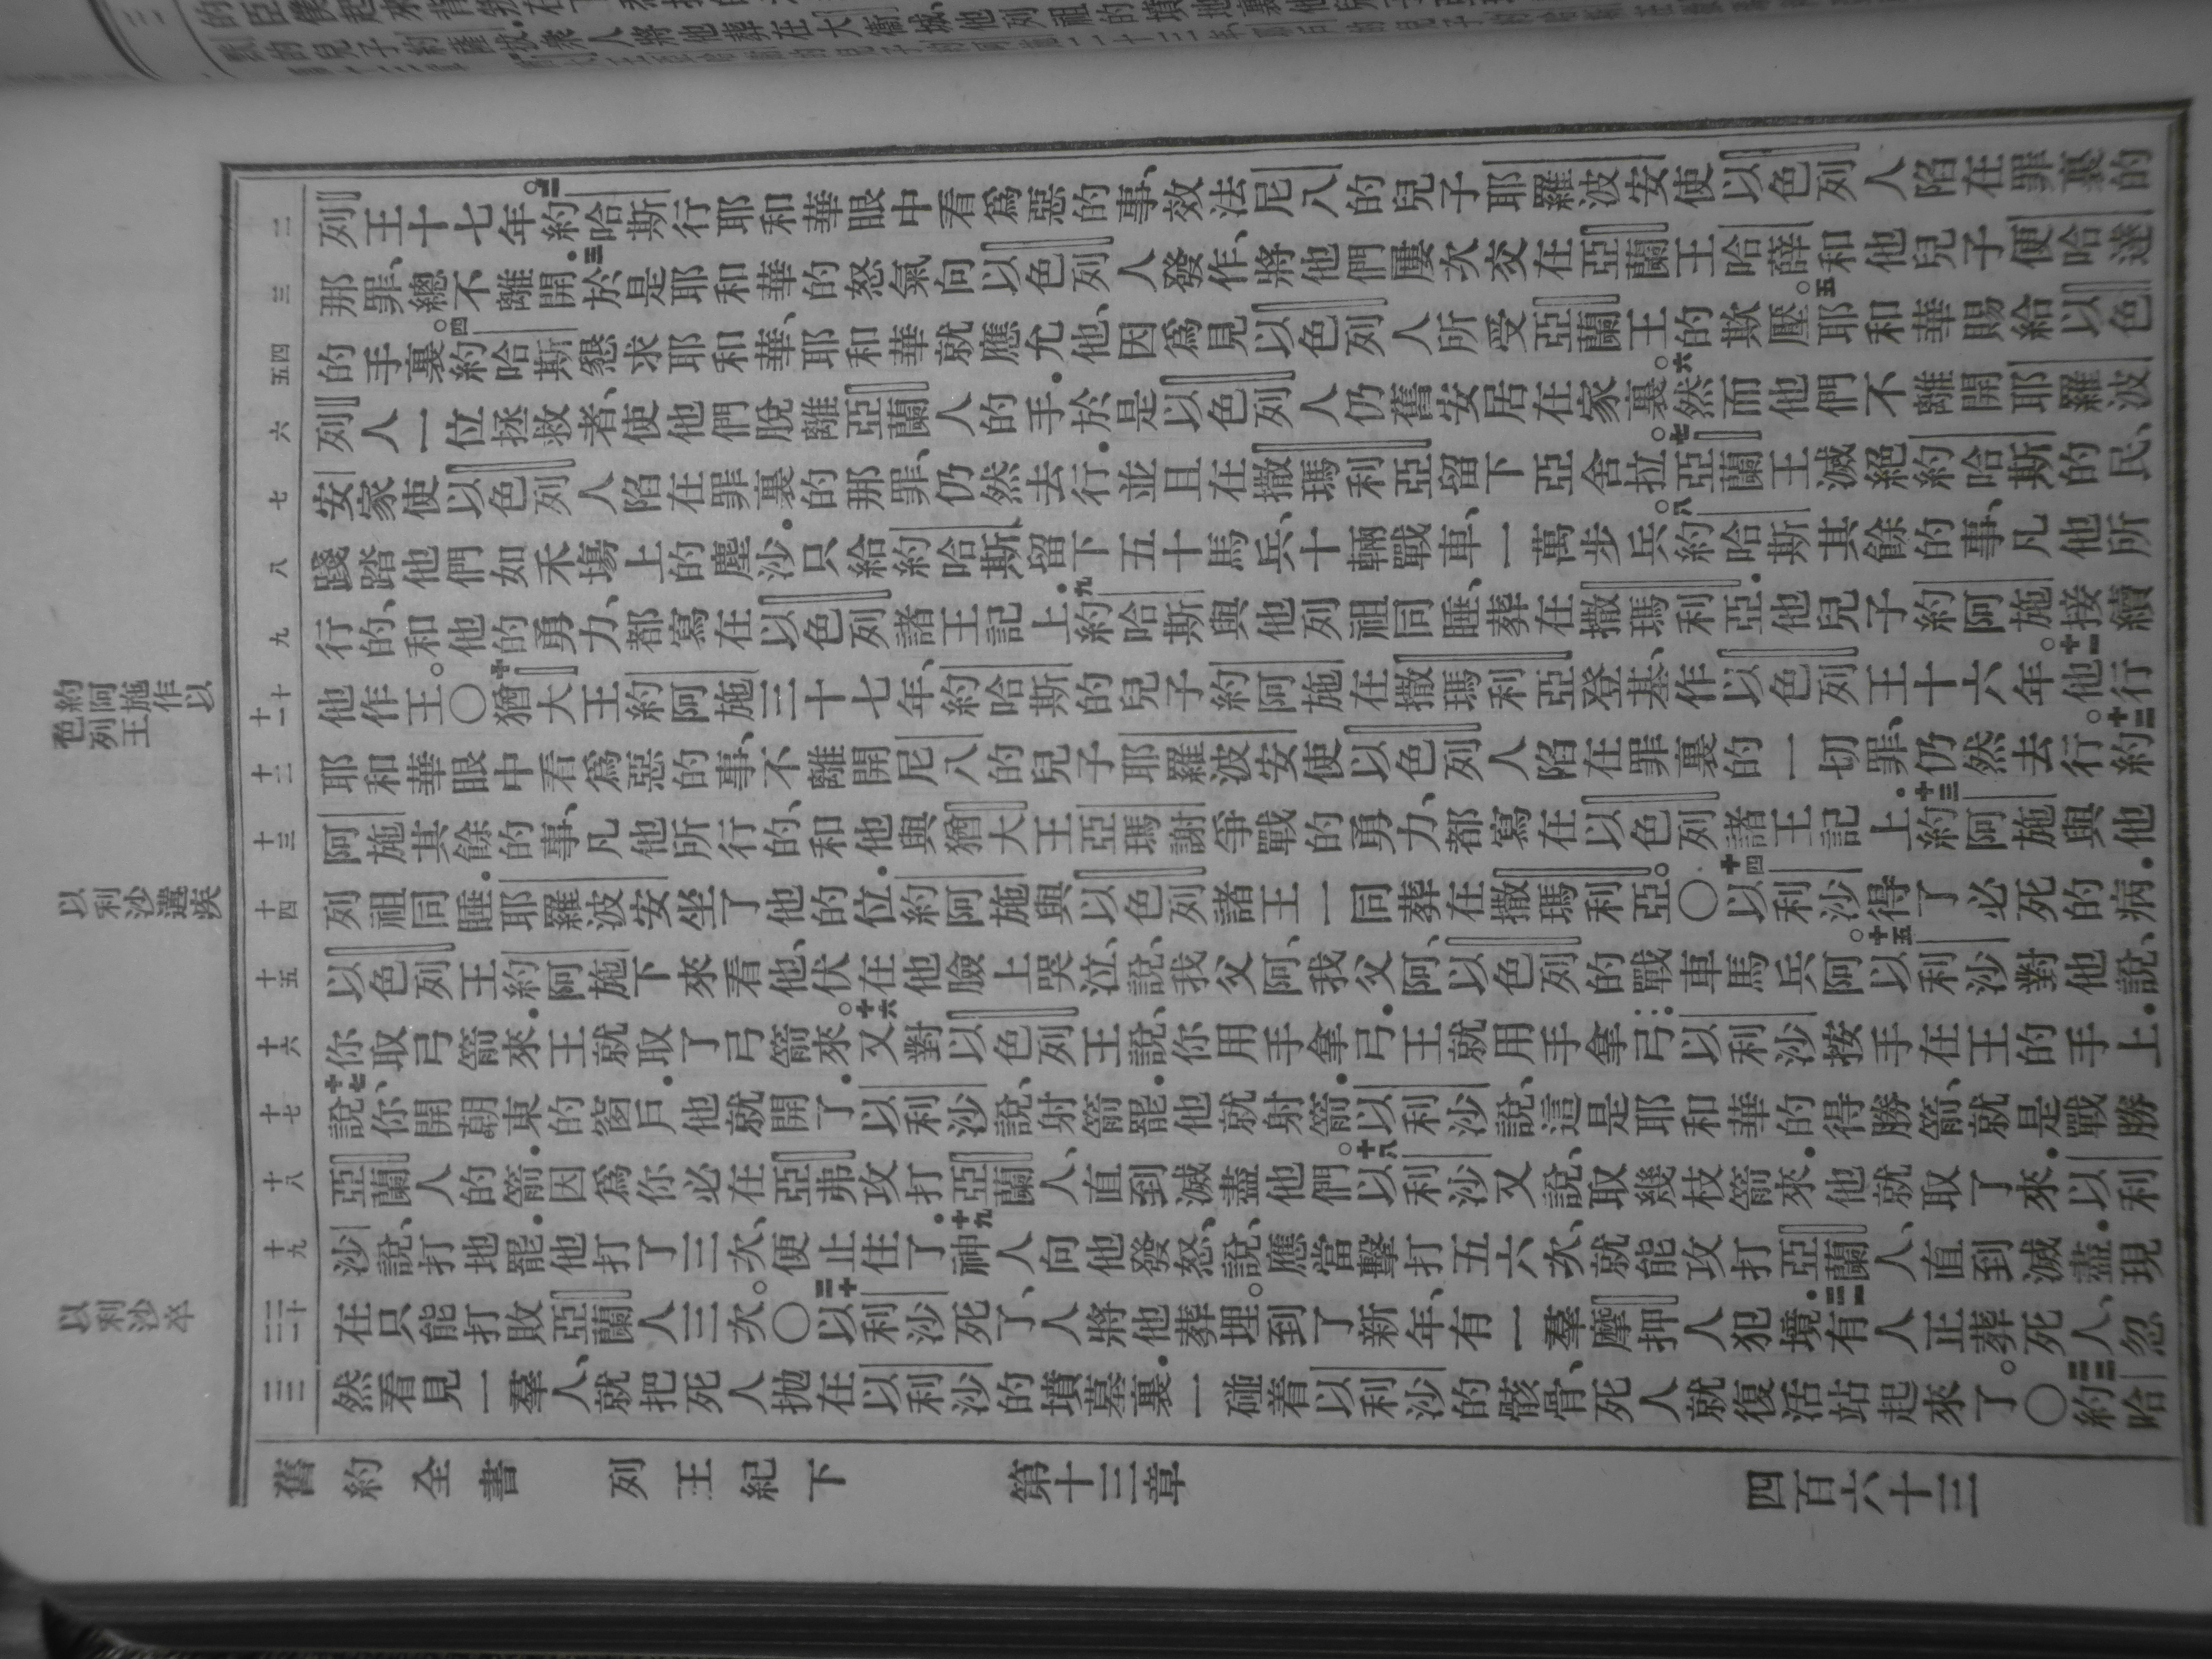 列王十七年。二約哈斯行耶和華眼中看爲惡的事、效法尼八的兒子耶羅波安使以色列人陷在罪裏的
那罪、總不離開.三於是耶和華的怒氣向以色列人發作、將他們屢次交在亞蘭王哈薛和他兒子便哈達
的手裏。四約哈斯懇求耶和華、耶和華就應允他、因爲見以色列人所受亞蘭王的欺壓。五耶和華賜給以色
列人一位拯救者、使他們脫離亞蘭人的手.於是以色列人仍舊安居在家裏。六然而他們不離開耶羅波
安家使以色列人陷在罪裏的那罪、仍然去行.並且在撒瑪利亞留下亞舍拉。七亞蘭王滅絕約哈斯的民、
踐踏他們如禾塲上的塵沙.只給約哈斯留下五十馬兵、十輛戰車、一萬步兵。八約哈斯其餘的事、凡他所
行的、和他的勇力、都寫在以色列諸王記上.九約哈斯與他列祖同睡、葬在撒瑪利亞.他兒子約阿施接續
他作王。〇十猶大王約阿施三十七年、約哈斯的兒子約阿施在撒瑪利亞登基、作以色列王十六年。十一他行
耶和華眼中看爲惡的事、不離開尼八的兒子耶羅波安使以色列人陷在罪裏的一切罪、仍然去行。十二約
阿施其餘的事、凡他所行的、和他與猶大王亞瑪謝爭戰的勇力、都寫在以色列諸王記上.十三約阿施與他
列祖同睡.耶羅波安坐了他的位.約阿施與以色列諸王一同葬在撒瑪利亞。〇十四以利沙得了必死的病.
以色列王約阿施下來看他、伏在他臉上哭泣、說、我父阿、我父阿、以色列的戰車馬兵阿。十五以利沙對他說、
你取弓箭來.王就取了弓箭來。十六又對以色列王說、你用手拿弓.王就用手拿弓.以利沙按手在王的手上.
說、十七你開朝東的窗戶.他就開了.以利沙說、射箭罷.他就射箭.以利沙說、這是耶和華的得勝箭、就是戰勝
亞蘭人的箭.因爲你必在亞弗攻打亞蘭人、直到滅盡他們。十八以利沙又說、取幾枝箭來.他就取了來.以利
沙說、打地罷.他打了三次、便止住了.十九神人向他發怒、說、應當擊打五六次、就能攻打亞蘭人、直到滅盡.現
在只能打敗亞蘭人三次。〇二十以利沙死了、人將他葬埋。到了新年、有一羣摩押人犯境.二一有人正葬死人、忽
然看見一羣人、就把死人抛在以利沙的墳墓裏.一碰着以利沙的骸骨、死人就復活站起來了。〇二二約哈
約阿施作以
色列王
以利沙遘疾
以利沙卒
舊約全書 列王紀下 第十三章 四百六十三